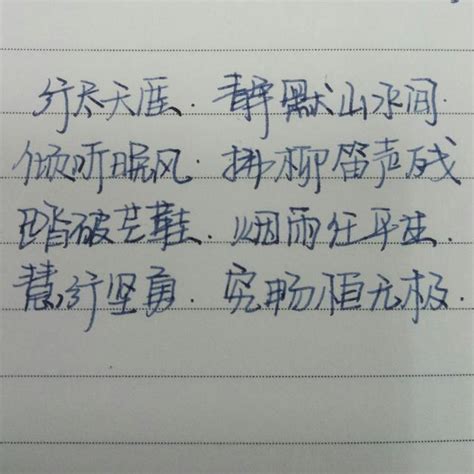 行尽天涯.静默山水间
倾听晚风.拂柳笛声残
踏破芒鞋.烟雨任平生
慧行坚勇.究畅恒无极